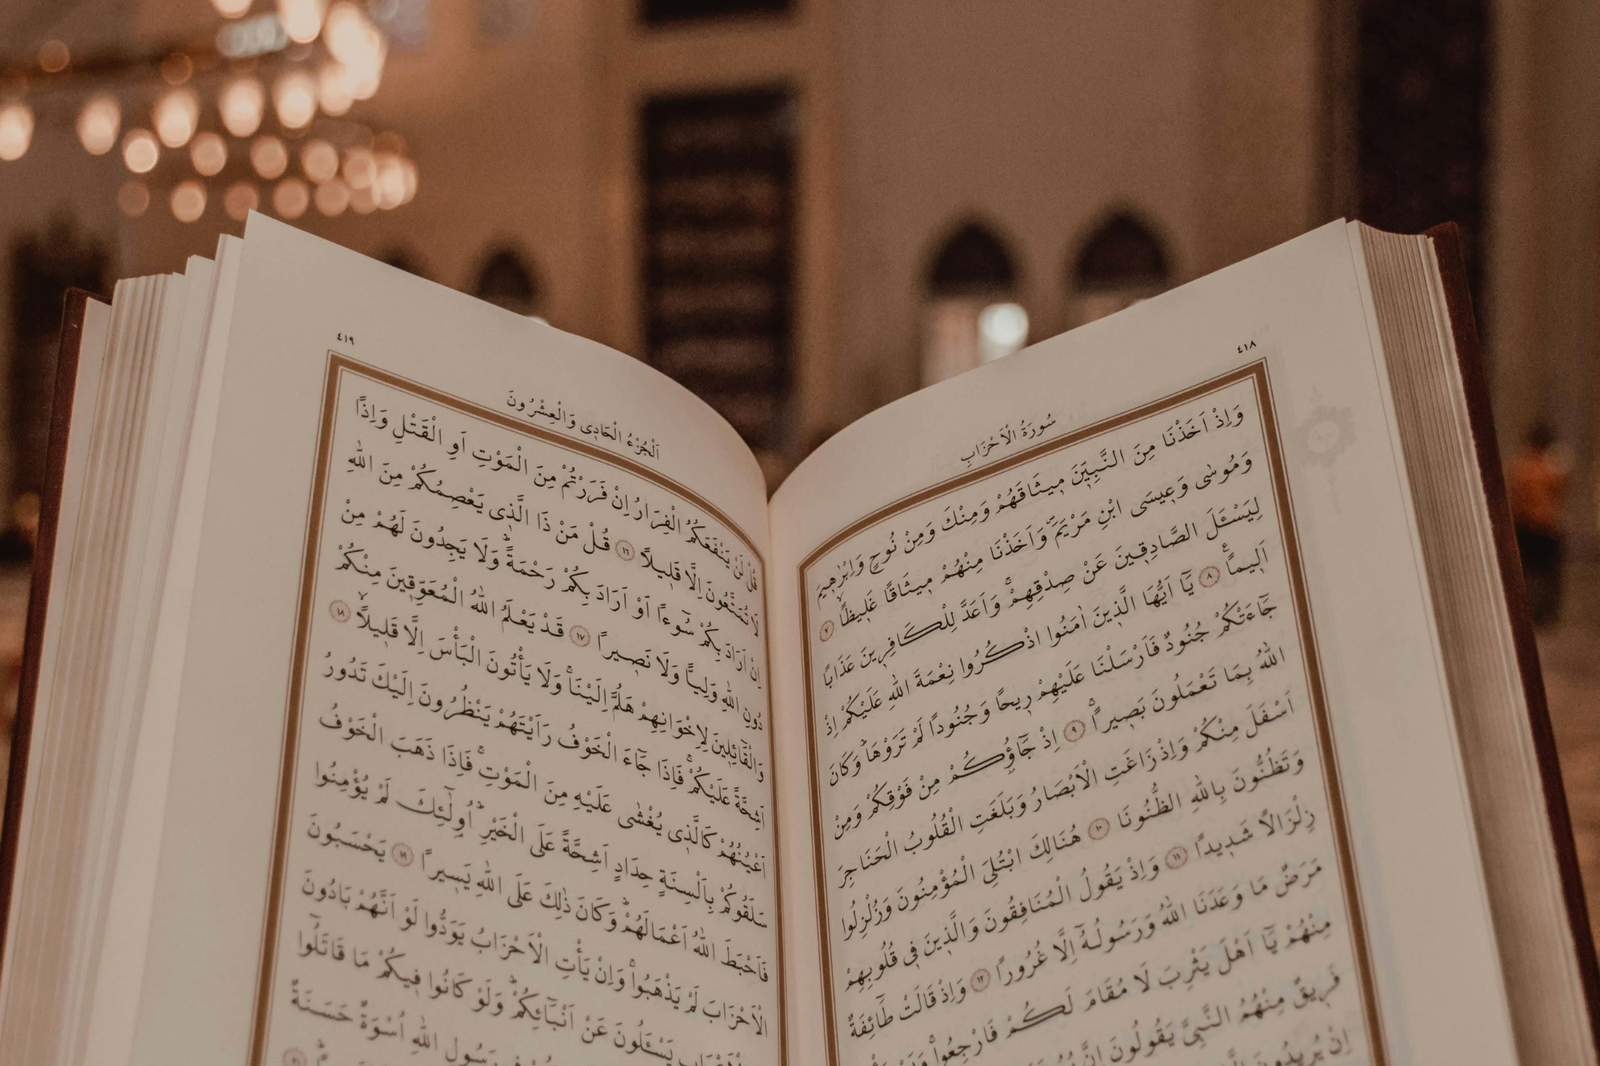 ٤١٨
سُورَةُ الْاَحْزَابِ
وَاِذْ اَخَذْنَا مِنَ النَّبِيّٖنَ مٖيثَاقَهُمْ وَمِنْكَ وَمِنْ نُوحٍ وَاِبْرٰهٖيمَ
وَمُوسٰى وَعٖيسَى ابْنِ مَرْيَمَۖ وَاَخَذْنَا مِنْهُمْ مٖيثَاقًا غَلٖيظًاۙ ٧
لِيَسْـَٔلَ الصَّادِقٖينَ عَنْ صِدْقِهِمْۚ وَاَعَدَّ لِلْكَافِرٖينَ عَذَابًا
اَلٖيمًاࣖ ٨ يَٓا اَيُّهَا الَّذٖينَ اٰمَنُوا اذْكُرُوا نِعْمَةَ اللّٰهِ عَلَيْكُمْ اِذْ
جَٓاءَتْكُمْ جُنُودٌ فَاَرْسَلْنَا عَلَيْهِمْ رٖيحًا وَجُنُودًا لَمْ تَرَوْهَاؕ وَكَانَ
اللّٰهُ بِمَا تَعْمَلُونَ بَصٖيرًاۚ ٩ اِذْ جَٓاؤُ۫كُمْ مِنْ فَوْقِكُمْ وَمِنْ
اَسْفَلَ مِنْكُمْ وَاِذْ زَاغَتِ الْاَبْصَارُ وَبَلَغَتِ الْقُلُوبُ الْحَنَاجِرَ
وَتَظُنُّونَ بِاللّٰهِ الظُّنُونَا ١٠ هُنَالِكَ ابْتُلِيَ الْمُؤْمِنُونَ وَزُلْزِلُوا
زِلْزَالًا شَدٖيدًا ١١ وَاِذْ يَقُولُ الْمُنَافِقُونَ وَالَّذٖينَ فٖى قُلُوبِهِمْ
مَرَضٌ مَا وَعَدَنَا اللّٰهُ وَرَسُولُهُٓ اِلَّا غُرُورًا ١٢ وَاِذْ قَالَتْ طَٓائِفَةٌ
مِنْهُمْ يَٓا اَهْلَ يَثْرِبَ لَا مُقَامَ لَكُمْ فَارْجِعُواۚ
فَرٖيقٌ مِنْهُمُ النَّبِيَّ يَقُولُونَ اِنَّ
اِنْ يُرٖيدُونَ
٤١٩
اَلْجُزْءُ الْحَادٖى وَالْعِشْرُونَ
قُلْ لَنْ يَنْفَعَكُمُ الْفِرَارُ اِنْ فَرَرْتُمْ مِنَ الْمَوْتِ اَوِ الْقَتْلِ وَاِذًا
لَا تُمَتَّعُونَ اِلَّا قَلٖيلًا ١٦ قُلْ مَنْ ذَا الَّذٖى يَعْصِمُكُمْ مِنَ اللّٰهِ
اِنْ اَرَادَ بِكُمْ سُٓوءًا اَوْ اَرَادَ بِكُمْ رَحْمَةًؕ وَلَا يَجِدُونَ لَهُمْ مِنْ
دُونِ اللّٰهِ وَلِيًّا وَلَا نَصٖيرًا ١٧ قَدْ يَعْلَمُ اللّٰهُ الْمُعَوِّقٖينَ مِنْكُمْ
وَالْقَٓائِلٖينَ لِاِخْوَانِهِمْ هَلُمَّ اِلَيْنَاۚ وَلَا يَأْتُونَ الْبَأْسَ اِلَّا قَلٖيلًاۙ ١٨
اَشِحَّةً عَلَيْكُمْۚ فَاِذَا جَٓاءَ الْخَوْفُ رَاَيْتَهُمْ يَنْظُرُونَ اِلَيْكَ تَدُورُ
اَعْيُنُهُمْ كَالَّذٖى يُغْشٰى عَلَيْهِ مِنَ الْمَوْتِۚ فَاِذَا ذَهَبَ الْخَوْفُ
سَلَقُوكُمْ بِاَلْسِنَةٍ حِدَادٍ اَشِحَّةً عَلَى الْخَيْرِؕ اُو۬لٰٓئِكَ لَمْ يُؤْمِنُوا
فَاَحْبَطَ اللّٰهُ اَعْمَالَهُمْؕ وَكَانَ ذٰلِكَ عَلَى اللّٰهِ يَسٖيرًا ١٩ يَحْسَبُونَ
الْاَحْزَابَ لَمْ يَذْهَبُواۚ وَاِنْ يَأْتِ الْاَحْزَابُ يَوَدُّوا لَوْ اَنَّهُمْ بَادُونَ
يَسْـَٔلُونَ عَنْ اَنْبَٓائِكُمْؕ وَلَوْ كَانُوا فٖيكُمْ مَا قَاتَلُٓوا
رَسُولِ اللّٰهِ اُسْوَةٌ حَسَنَةٌ